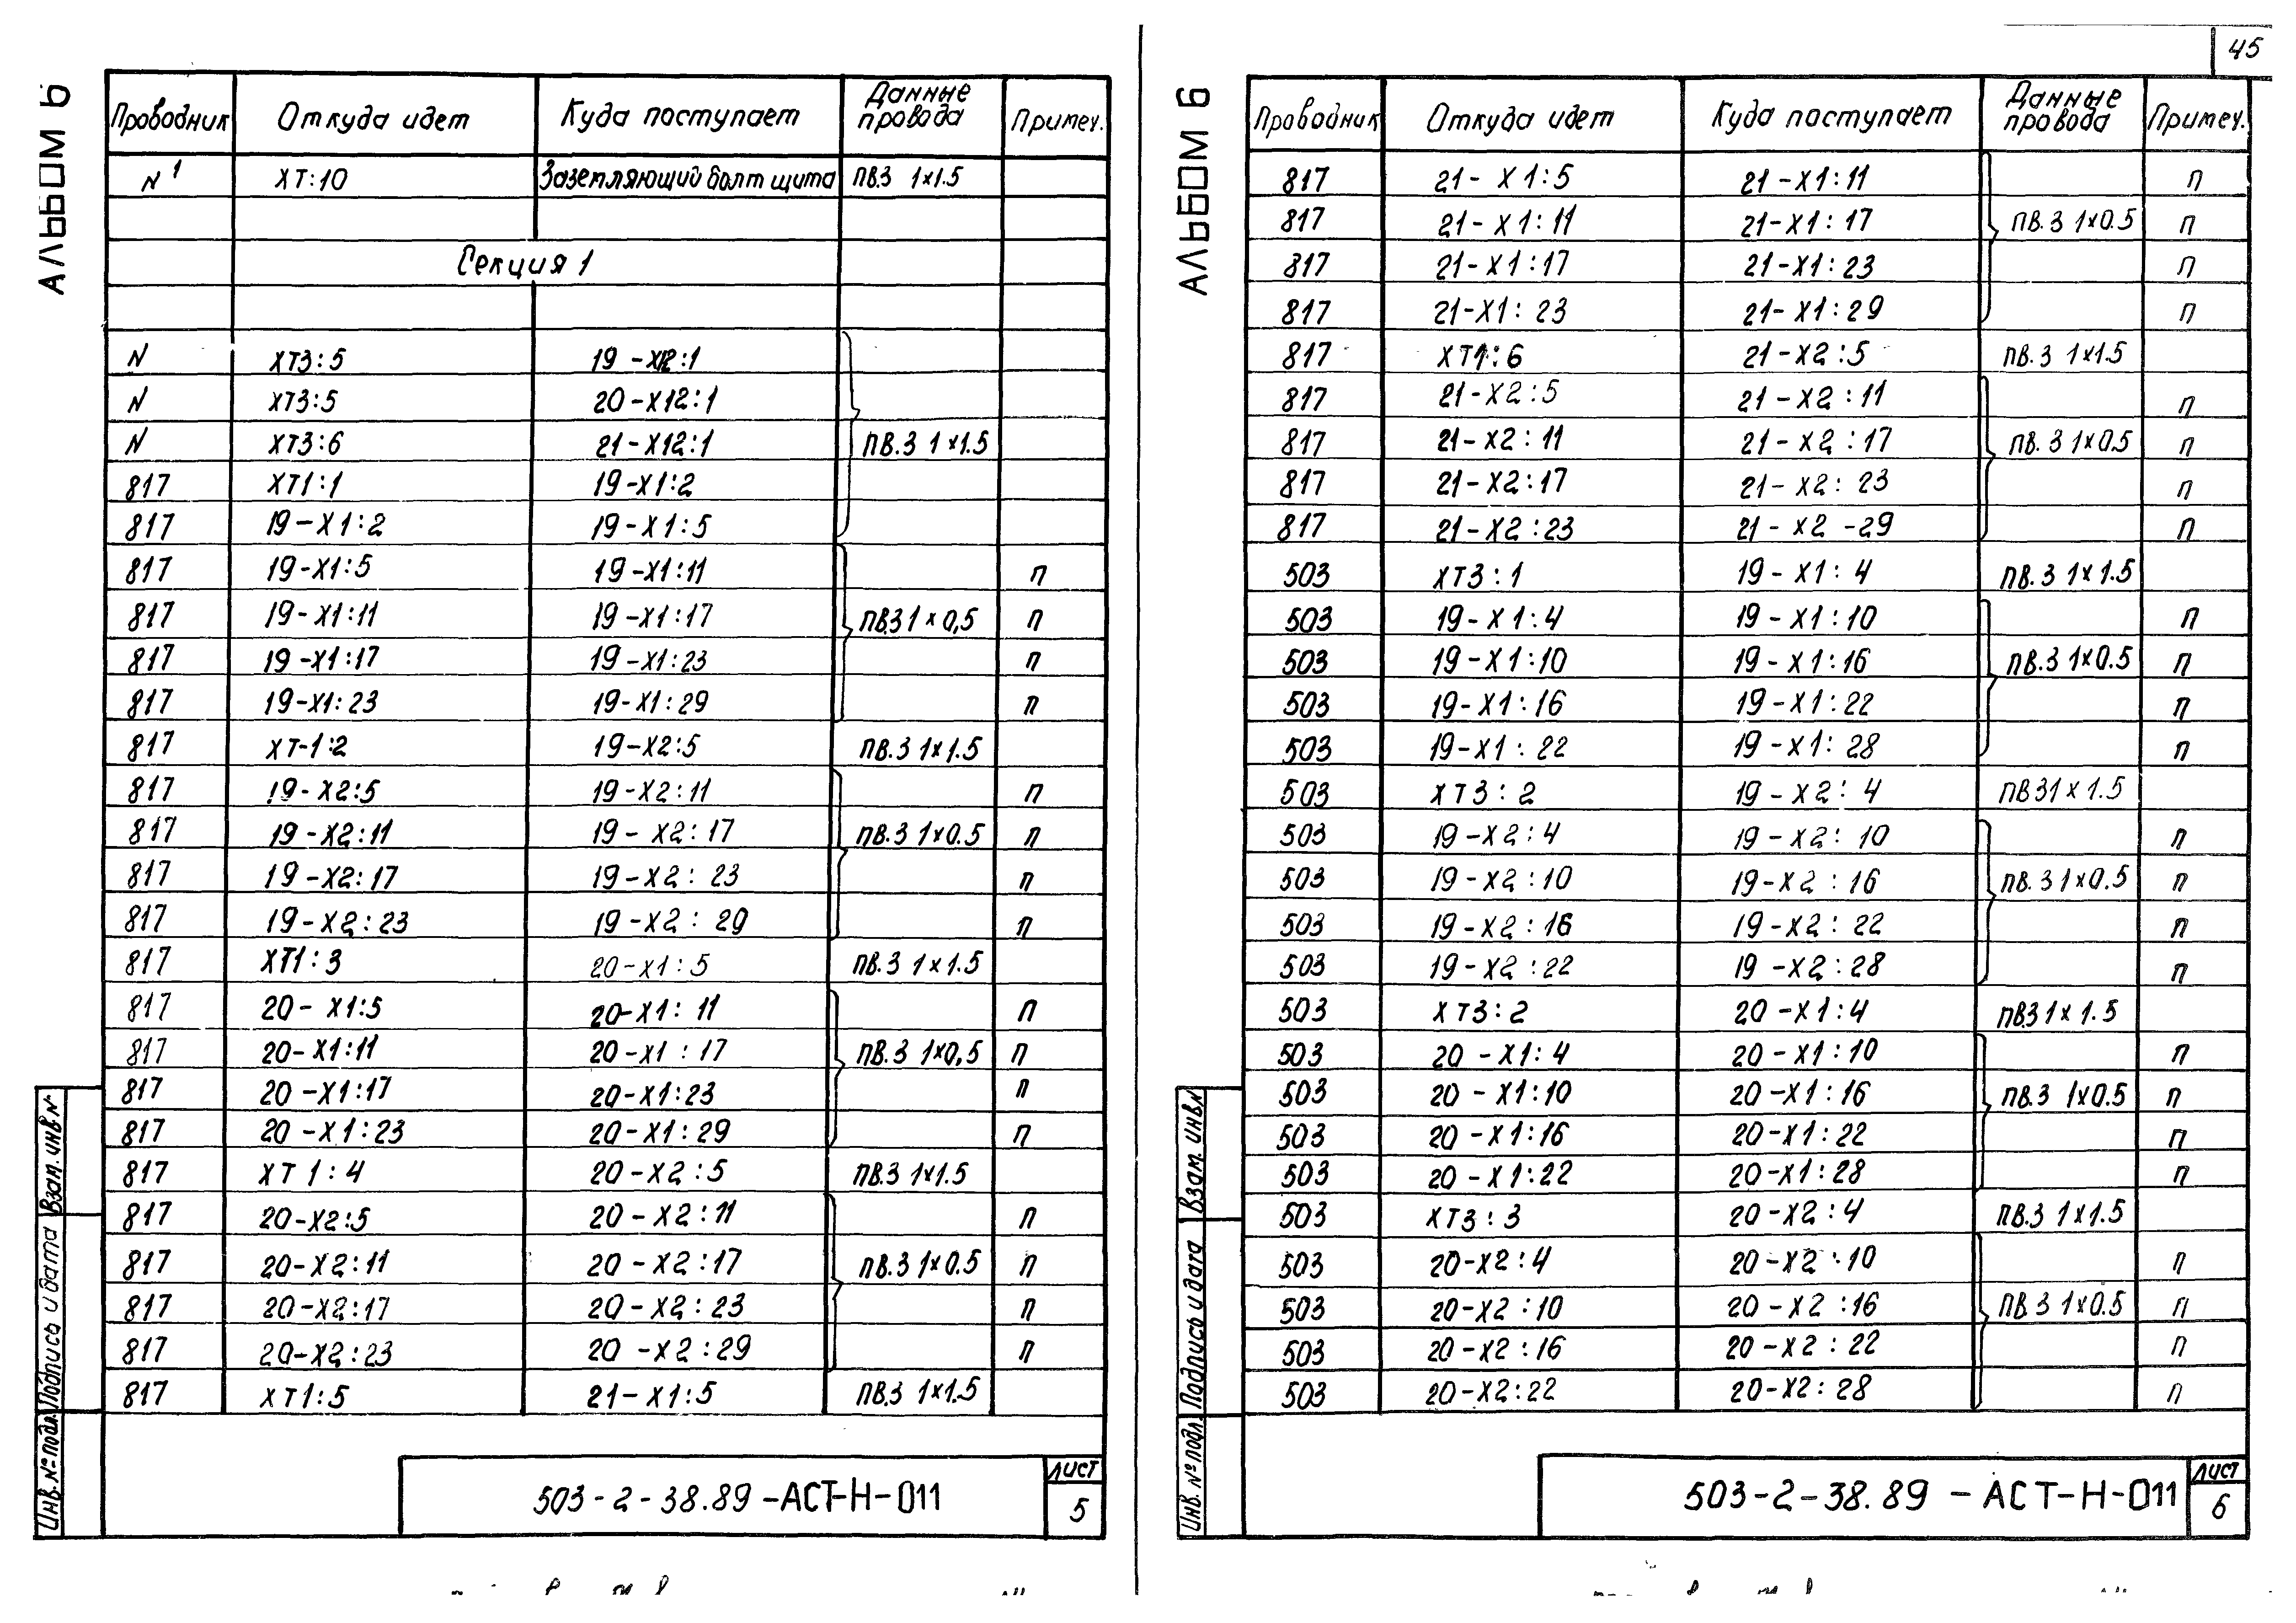 45
АЛЬБОМ 6
Проводник Откуда идет Куда поступает Данные провода Примеч.
N1 ХТ:10 Заземляющий болт щита ПВ.3 1х1.5
Секция 1
N ХТ3:5 19-Х12:1
N ХТ3:5 20-Х12:1
N ХТ3:6 21-Х12:1 ПВ.3 1х1.5
817 ХТ1:1 19-Х1:2
817 19-Х1:2 19-Х1:5
817 19-Х1:5 19-Х1:11 П
817 19-Х1:11 19-Х1:17 ПВ.3 1х0,5 П
817 19-Х1:17 19-Х1:23 П
817 19-Х1:23 19-Х1:29 П
817 ХТ-1:2 19-Х2:5 ПВ.3 1х1.5
817 19-Х2:5 19-Х2:11 П
817 19-Х2:11 19-Х2:17 ПВ.3 1х0.5 П
817 19-Х2:17 19-Х2:23 П
817 19-Х2:23 19-Х2:29 П
817 ХТ1:3 20-Х1:5 ПВ.3 1х1.5
817 20-Х1:5 20-Х1:11 П
817 20-Х1:11 20-Х1:17 ПВ.3 1х0,5 П
817 20-Х1:17 20-Х1:23 П
817 20-Х1:23 20-Х1:29 П
817 ХТ1:4 20-Х2:5 ПВ.3 1х1.5
817 20-Х2:5 20-Х2:11 П
817 20-Х2:11 20-Х2:17 ПВ.3 1х0.5 П
817 20-Х2:17 20-Х2:23 П
817 20-Х2:23 20-Х2:29 П
817 ХТ1:5 21-Х1:5 ПВ.3 1х1.5
Инв. №подл. Подпись и дата Взам. инв.№
503-2-38.89-АСТ-Н-011
лист
5
АЛЬБОМ 6
Проводник Откуда идет Куда поступает Данные провода Примеч.
817 21-Х1:5 21-Х1:11 П
817 21-Х1:11 21-Х1:17 ПВ.3 1х0.5 П
817 21-Х1:17 21-Х1:23 П
817 21-Х1:23 21-Х1:29 П
817 ХТ1:6 21-Х2:5 ПВ.3 1х1.5
817 21-Х2:5 21-Х2:11 П
817 21-Х2:11 21-Х2:17 ПВ.3 1х0.5 П
817 21-Х2:17 21-Х2:23 П
817 21-Х2:23 21-Х2-29 П
503 ХТ3:1 19-Х1:4 ПВ.3 1х1.5
503 19-Х1:4 19-Х1:10 П
503 19-Х1:10 19-Х1:16 ПВ.3 1х0.5 П
503 19-Х1:16 19-Х1:22 П
503 19-Х1:22 19-Х1:28 П
503 ХТ3:2 19-Х2:4 ПВ3 1х1.5
503 19-Х2:4 19-Х2:10 П
503 19-Х2:10 19-Х2:16 ПВ.3 1х0.5 П
503 19-Х2:16 19-Х2:22 П
503 19-Х2:22 19-Х2:28 П
503 ХТ3:2 20-Х1:4 ПВ3 1х1.5
503 20-Х1:4 20-Х1:10 П
503 20-Х1:10 20-Х1:16 ПВ.3 1х0.5 П
503 20-Х1:16 20-Х1:22 П
503 20-Х1:22 20-Х1:28 П
503 ХТ3:3 20-Х2:4 ПВ.3 1х1.5
503 20-Х2:4 20-Х2:10 П
503 20-Х2:10 20-Х2:16 ПВ 3 1х0.5 П
503 20-Х2:16 20-Х2:22 П
503 20-Х2:22 20-Х2:28 П
Инв. №подл. Подпись и дата Взам. инв.№
503-2-38.89-АСТ-Н-011
лист
6